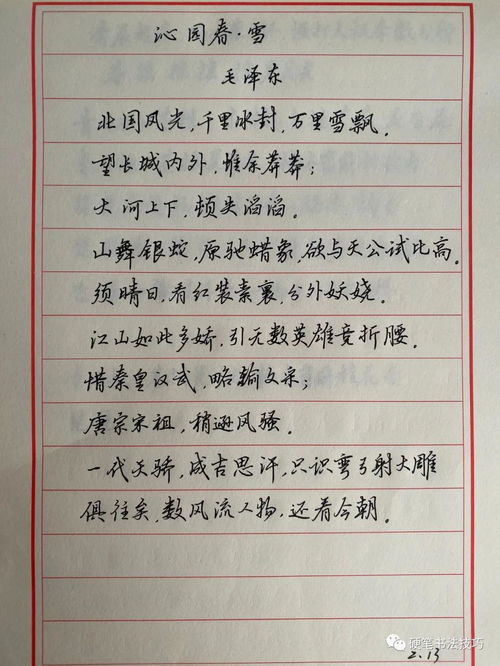 沁园春·雪
毛泽东
北国风光,千里冰封,万里雪飘。
望长城内外,惟余莽莽;
大河上下,顿失滔滔。
山舞银蛇,原驰蜡象,欲与天公试比高。
须晴日,看红装素裹,分外妖娆。
江山如此多娇,引无数英雄竞折腰。
惜秦皇汉武,略输文采;
唐宗宋祖,稍逊风骚。
一代天骄,成吉思汗,只识弯弓射大雕
俱往矣,数风流人物,还看今朝。
硬笔书法技巧
2.13